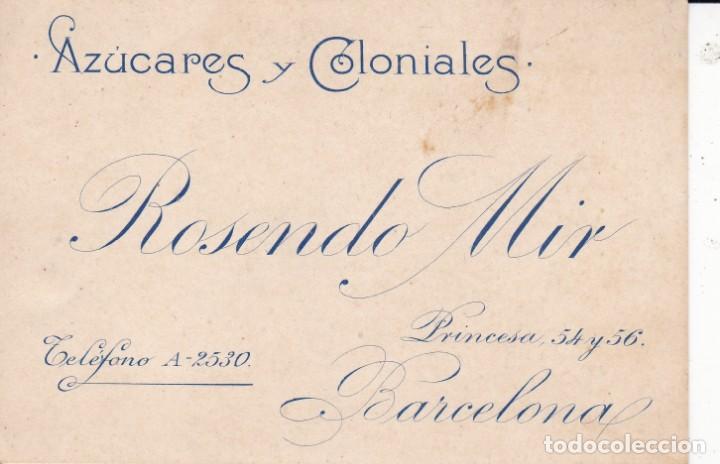 · Azúcares y Coloniales ·
Rosendo Mir
Princesa, 54 y 56.
Teléfono A-2530.
Barcelona
todocoleccion